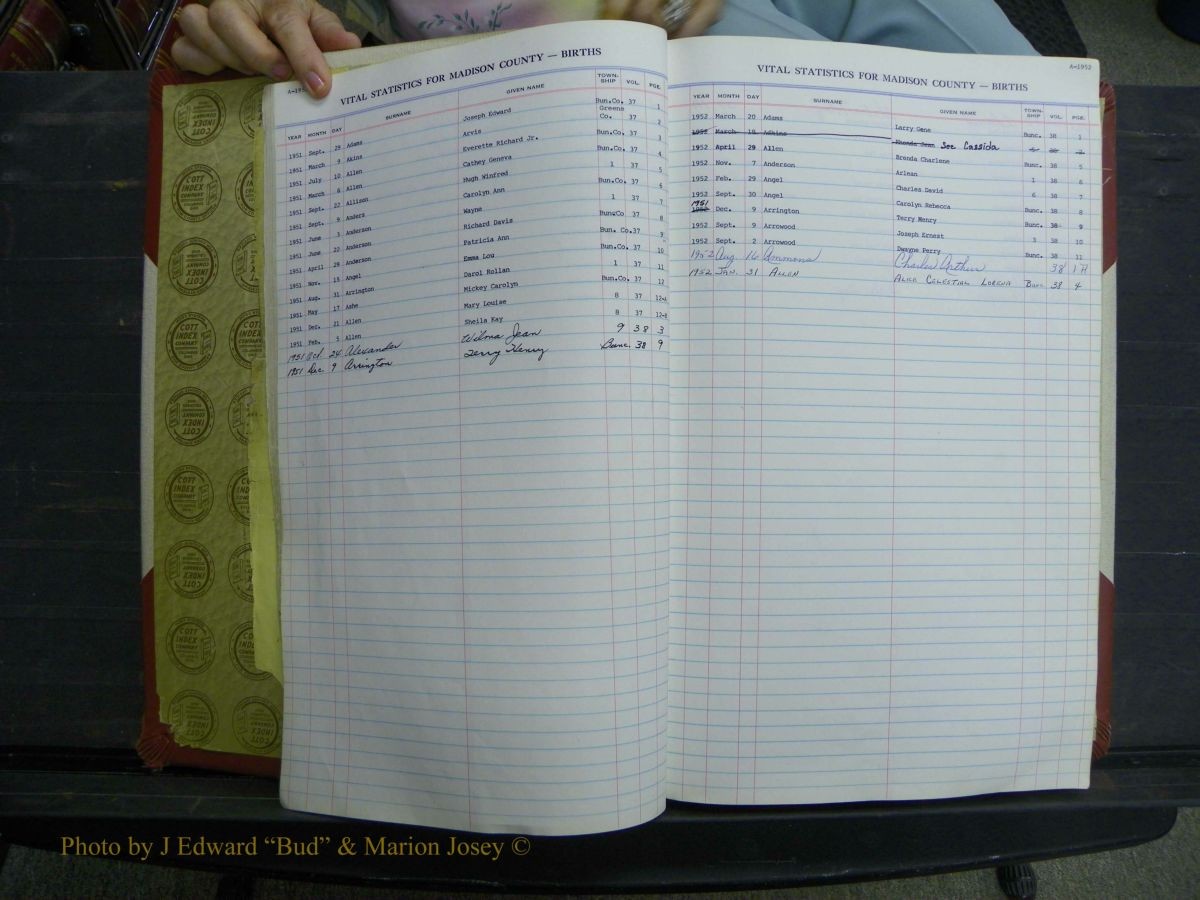 A-195
VITAL STATISTICS FOR MADISON COUNTY — BIRTHS
YEAR MONTH DAY SURNAME GIVEN NAME TOWN-SHIP VOL. PGE.
1951 Sept. 29 Adams Joseph Edward Bun.Co. 37 1
1951 March 9 Akins Arvis Greene Co. 37 2
1951 July 10 Allen Everette Richard Jr. Bun.Co. 37 3
1951 March 6 Allen Cathey Geneva Bun.Co. 37 4
1951 Sept. 22 Allison Hugh Winfred 1 37 5
1951 Sept. 9 Anders Carolyn Ann Bun.Co. 37 6
1951 June 3 Anderson Wayne 1 37 7
1951 June 22 Anderson Richard Davis Bun.Co 37 8
1951 April 29 Anderson Patricia Ann Bun. Co.37 9
1951 Nov. 15 Angel Emma Lou Bun.Co. 37 10
1951 Aug. 31 Arrington Darol Rollan 1 37 11
1951 May 17 Ashe Mickey Carolyn Bun.Co. 37 12
1951 Dec. 21 Allen Mary Louise 8 37 12-A
1951 Feb. 5 Allen Sheila Kay 8 37 12-B
1951 Oct 24 Alexander Wilma Jean 9 38 3
1951 Dec. 9 Arrington Terry Henry Bunc. 38 9
A-1952
VITAL STATISTICS FOR MADISON COUNTY — BIRTHS
YEAR MONTH DAY SURNAME GIVEN NAME TOWN-SHIP VOL. PGE.
1952 March 20 Adams Larry Gene Bunc. 38 1
1952 March 18 Adkins Rhonda Jean See Cassida 38 2
1952 April 29 Allen Brenda Charlene Bunc. 38 5
1952 Nov. 7 Anderson Arlnan 1 38 6
1952 Feb. 29 Angel Charles David 6 38 7
1952 Sept. 30 Angel Carolyn Rebecca Bunc. 38 8
1951 1952 Dec. 9 Arrington Terry Henry Bunc. 38 9
1952 Sept. 9 Arrowood Joseph Ernest 3 38 10
1952 Sept. 2 Arrowood Dwayne Perry Bunc. 38 11
1952 Aug. 16 Ammons Charles Arthur 38 1A
1952 Jan. 31 Allen Alice Celestial Lorena Bunc. 38 4
COTT INDEX COMPANY
Photo by J Edward “Bud” & Marion Josey ©